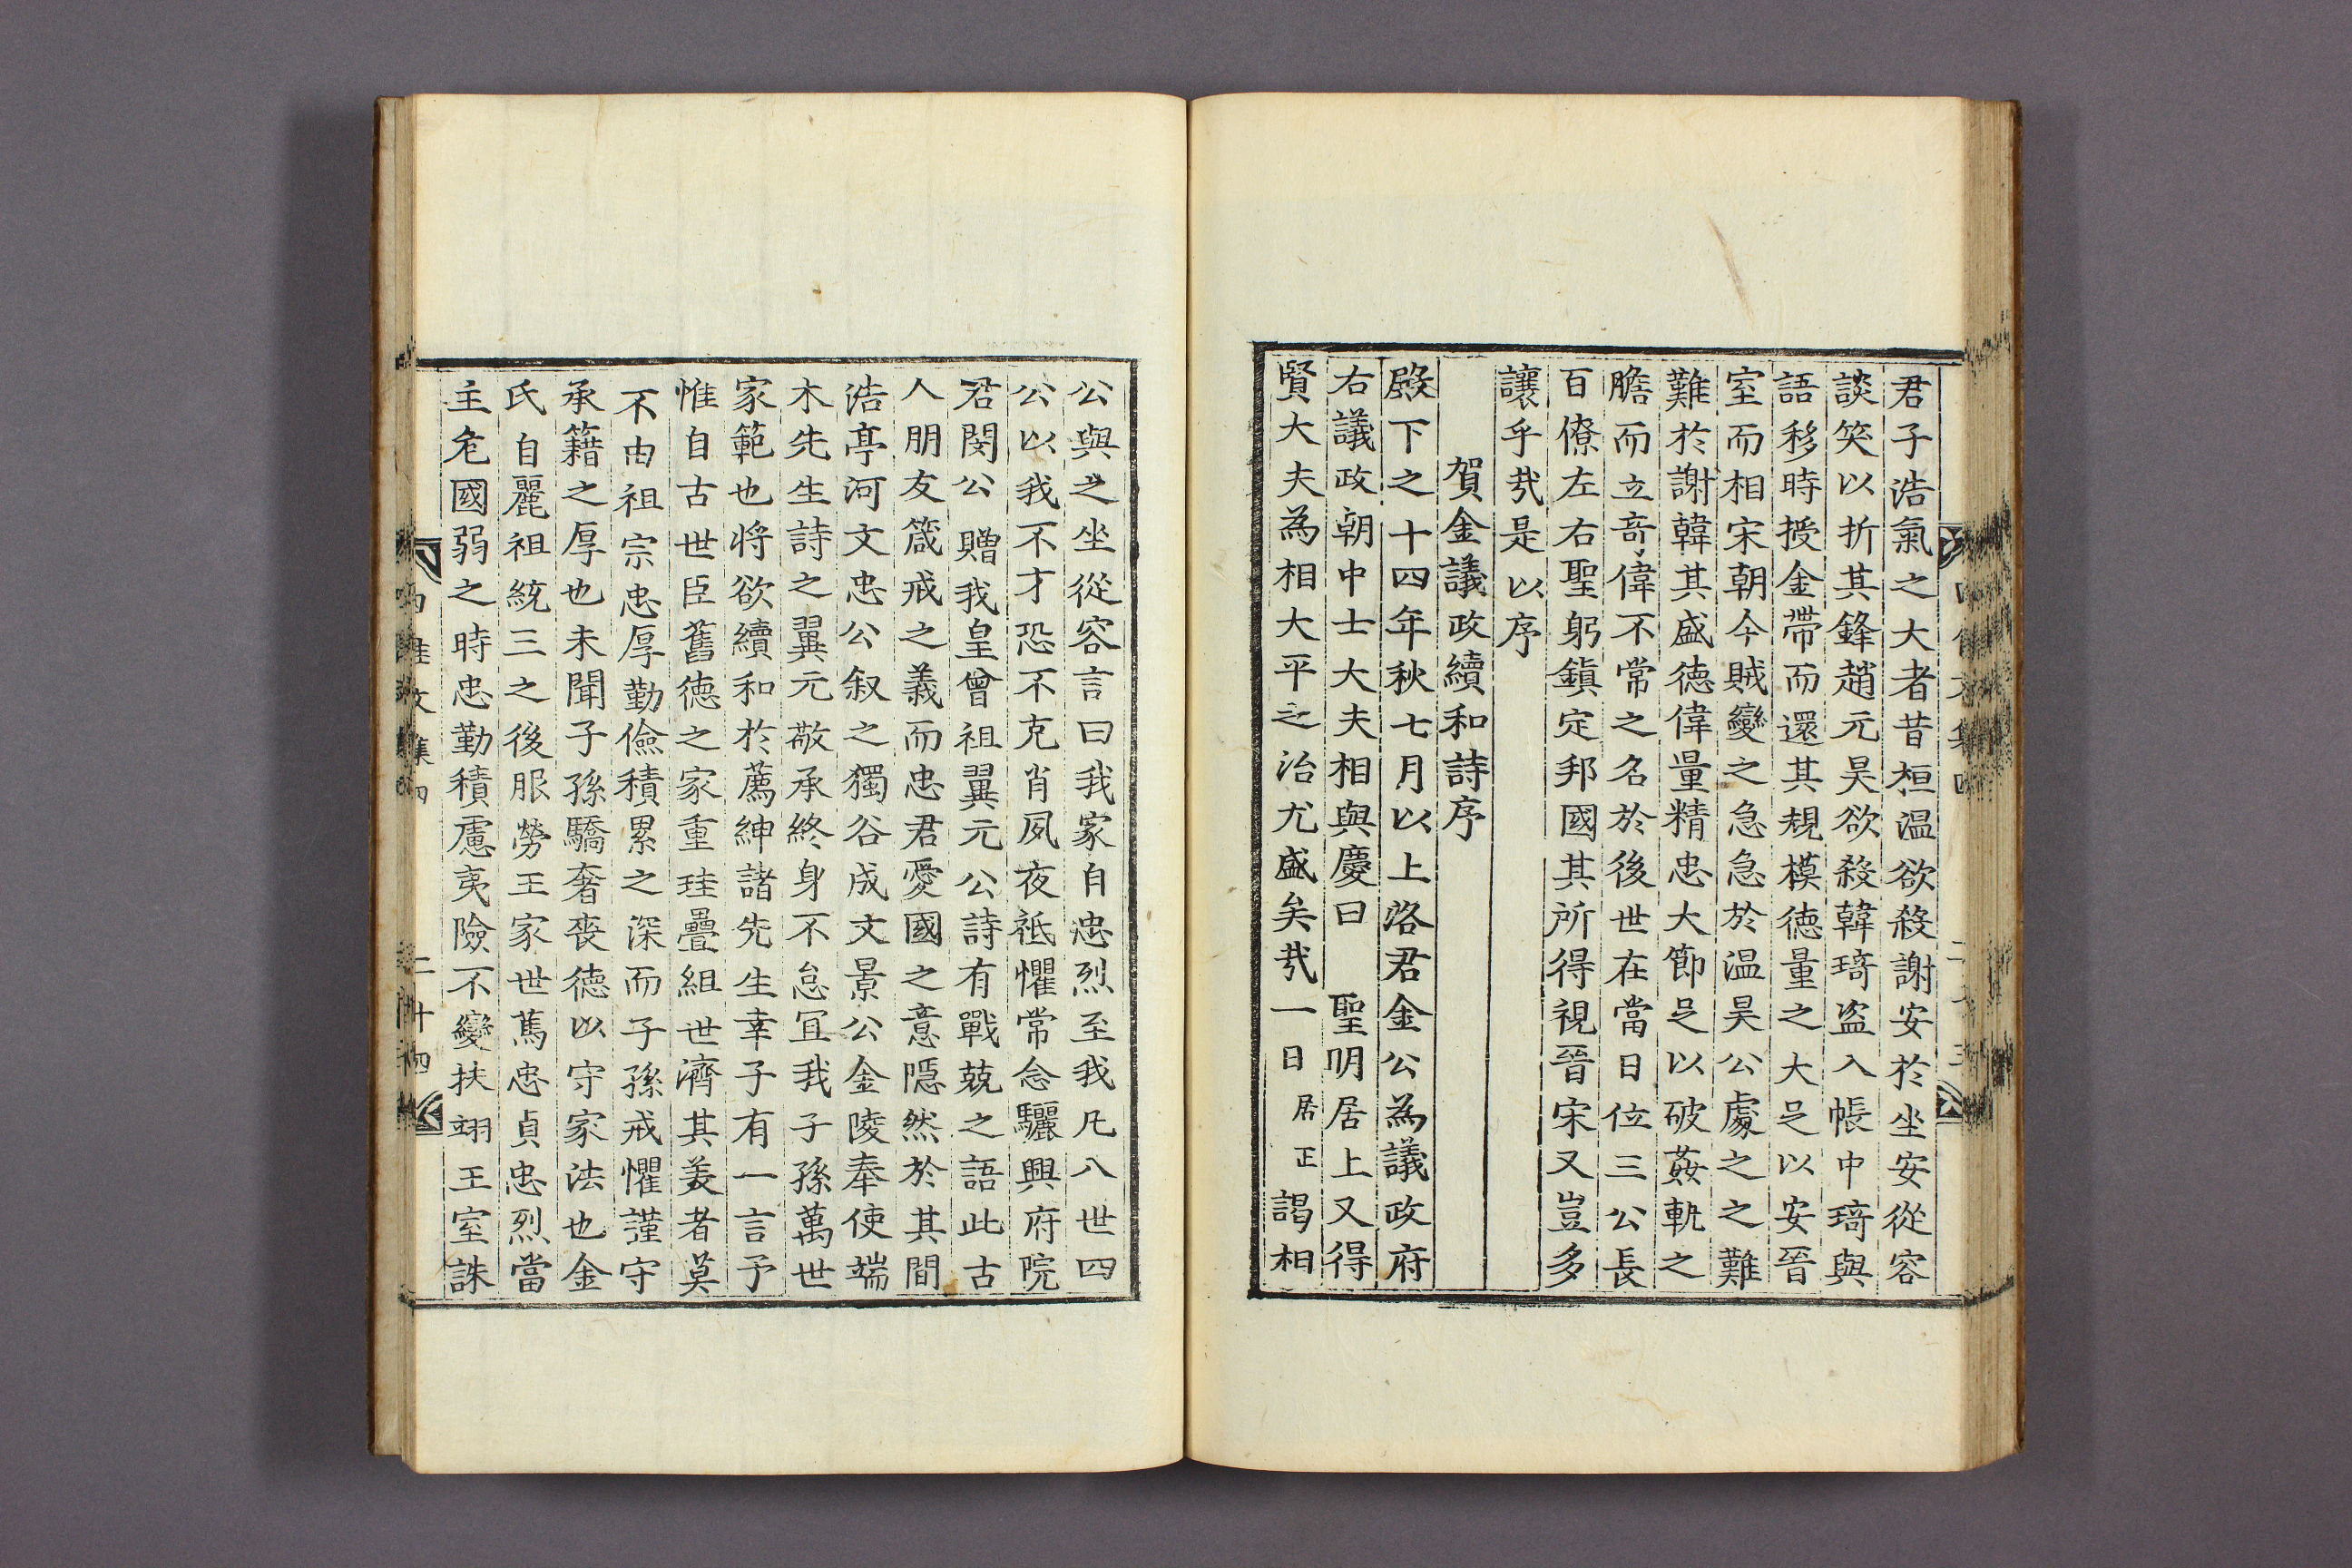 君子浩氣之大者昔桓温欲殺謝安於坐安從容
談笑以折其鋒趙元昊欲殺韓琦盗入帳中琦與
語移時授金帶而還其規模徳量之大足以安晉
室而相宋朝今賊變之急急於温昊公處之之難
難於謝韓其盛徳偉量精忠大節足以破姦軌之
膽而立竒偉不常之名於後世在當日位三公長
百僚左右聖躬鎭定邦國其所得視晉宋又豈多
讓乎㢤是以序
賀金議政續和詩序
殿下之十四年秋七月以上洛君金公為議政府
右議政朝中士大夫相與慶曰 聖明居上又得
賢大夫為相大平之治尤盛矣㢤一日居正謁相
公與之坐從容言曰我家自忠烈至我凡八世四
公以我不才恐不克肖夙夜祗懼常念驪興府院
君閔公 贈我皇曾祖翼元公詩有戰兢之語此古
人朋友箴戒之義而忠君愛國之意隠然於其間
浩亭河文忠公叙之獨谷成文景公金陵奉使端
木先生詩之翼元敬承終身不怠冝我子孫萬世
家範也将欲續和於薦紳諸先生幸子有一言予
惟自古世臣舊徳之家重珪疊組世濟其美者莫
不由祖宗忠厚勤儉積累之深而子孫戒懼謹守
承籍之厚也未聞子孫驕奢喪德以守家法也金
氏自麗祖統三之後服勞王家世篤忠貞忠烈當
主危國弱之時忠勤積慮夷險不變扶翊王室誅
二十四